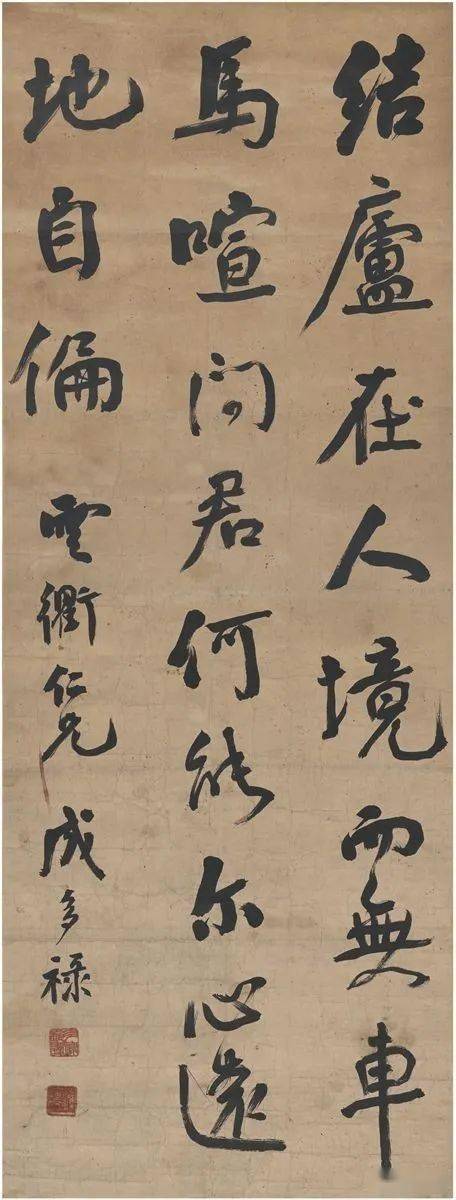 結廬在人境而無車
馬喧问君何能尔心遠
地自偏
雲衢仁兄 成多禄